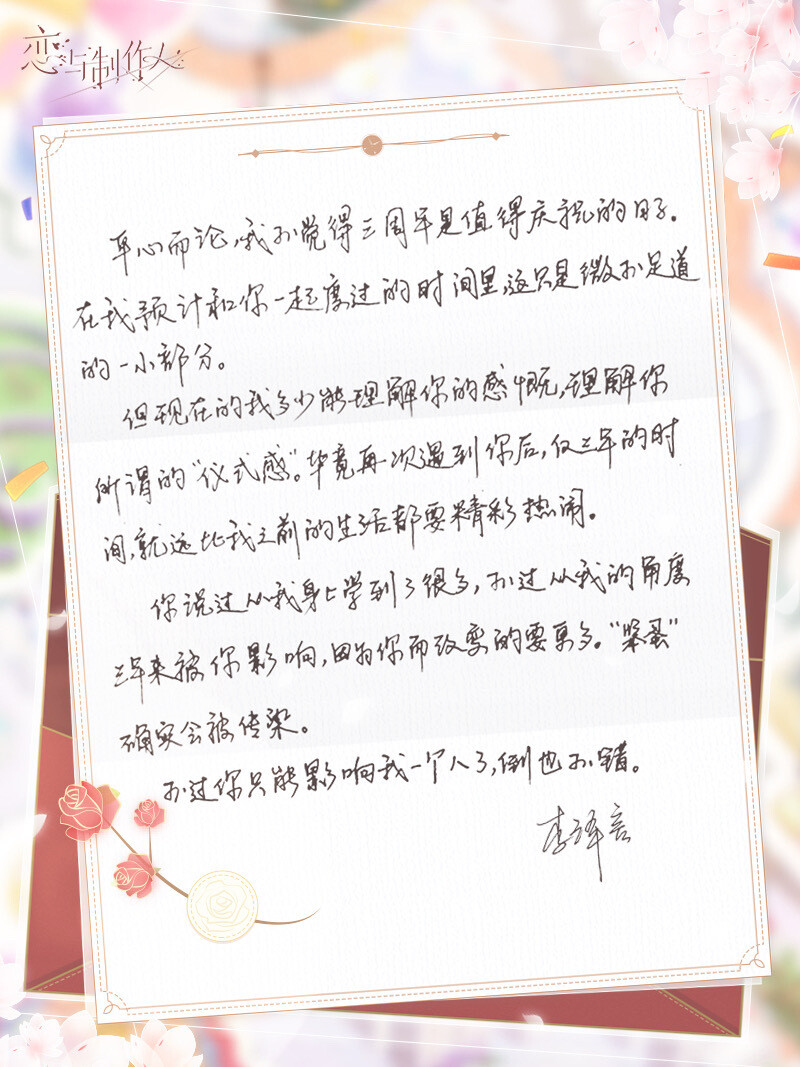 恋与制作人
平心而论,我不觉得三周年是值得庆祝的日子。
在我预计和你一起度过的时间里,这只是微不足道
的一小部分。
但现在的我多少能理解你的感慨,理解你
所谓的“仪式感”。毕竟再次遇到你后,仅三年的时
间,就远比我之前的生活都要精彩热闹。
你说过从我身上学到了很多,不过从我的角度
三年来被你影响,因为你而改变的要更多。“笨蛋”
确实会被传染。
不过你只能影响我一个人了,倒也不错。
李泽言